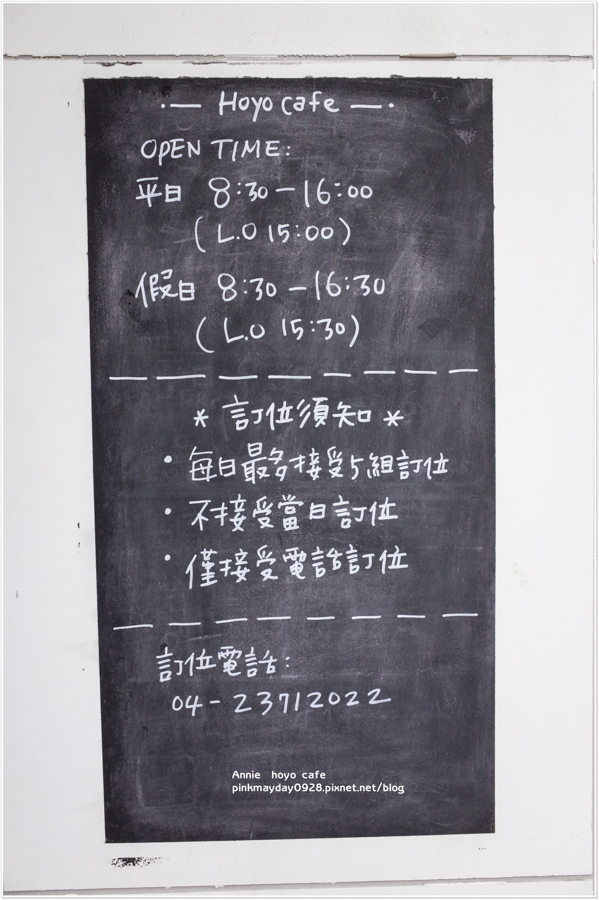 ·— Hoyo cafe —·
OPEN TIME:
平日 8:30－16:00
(L.O 15:00)
假日 8:30－16:30
(L.O 15:30)
* 訂位須知 *
· 每日最多接受5組訂位
· 不接受當日訂位
· 僅接受電話訂位
訂位電話:
04-23712022
Annie hoyo cafe
pinkmayday0928.pixnet.net/blog